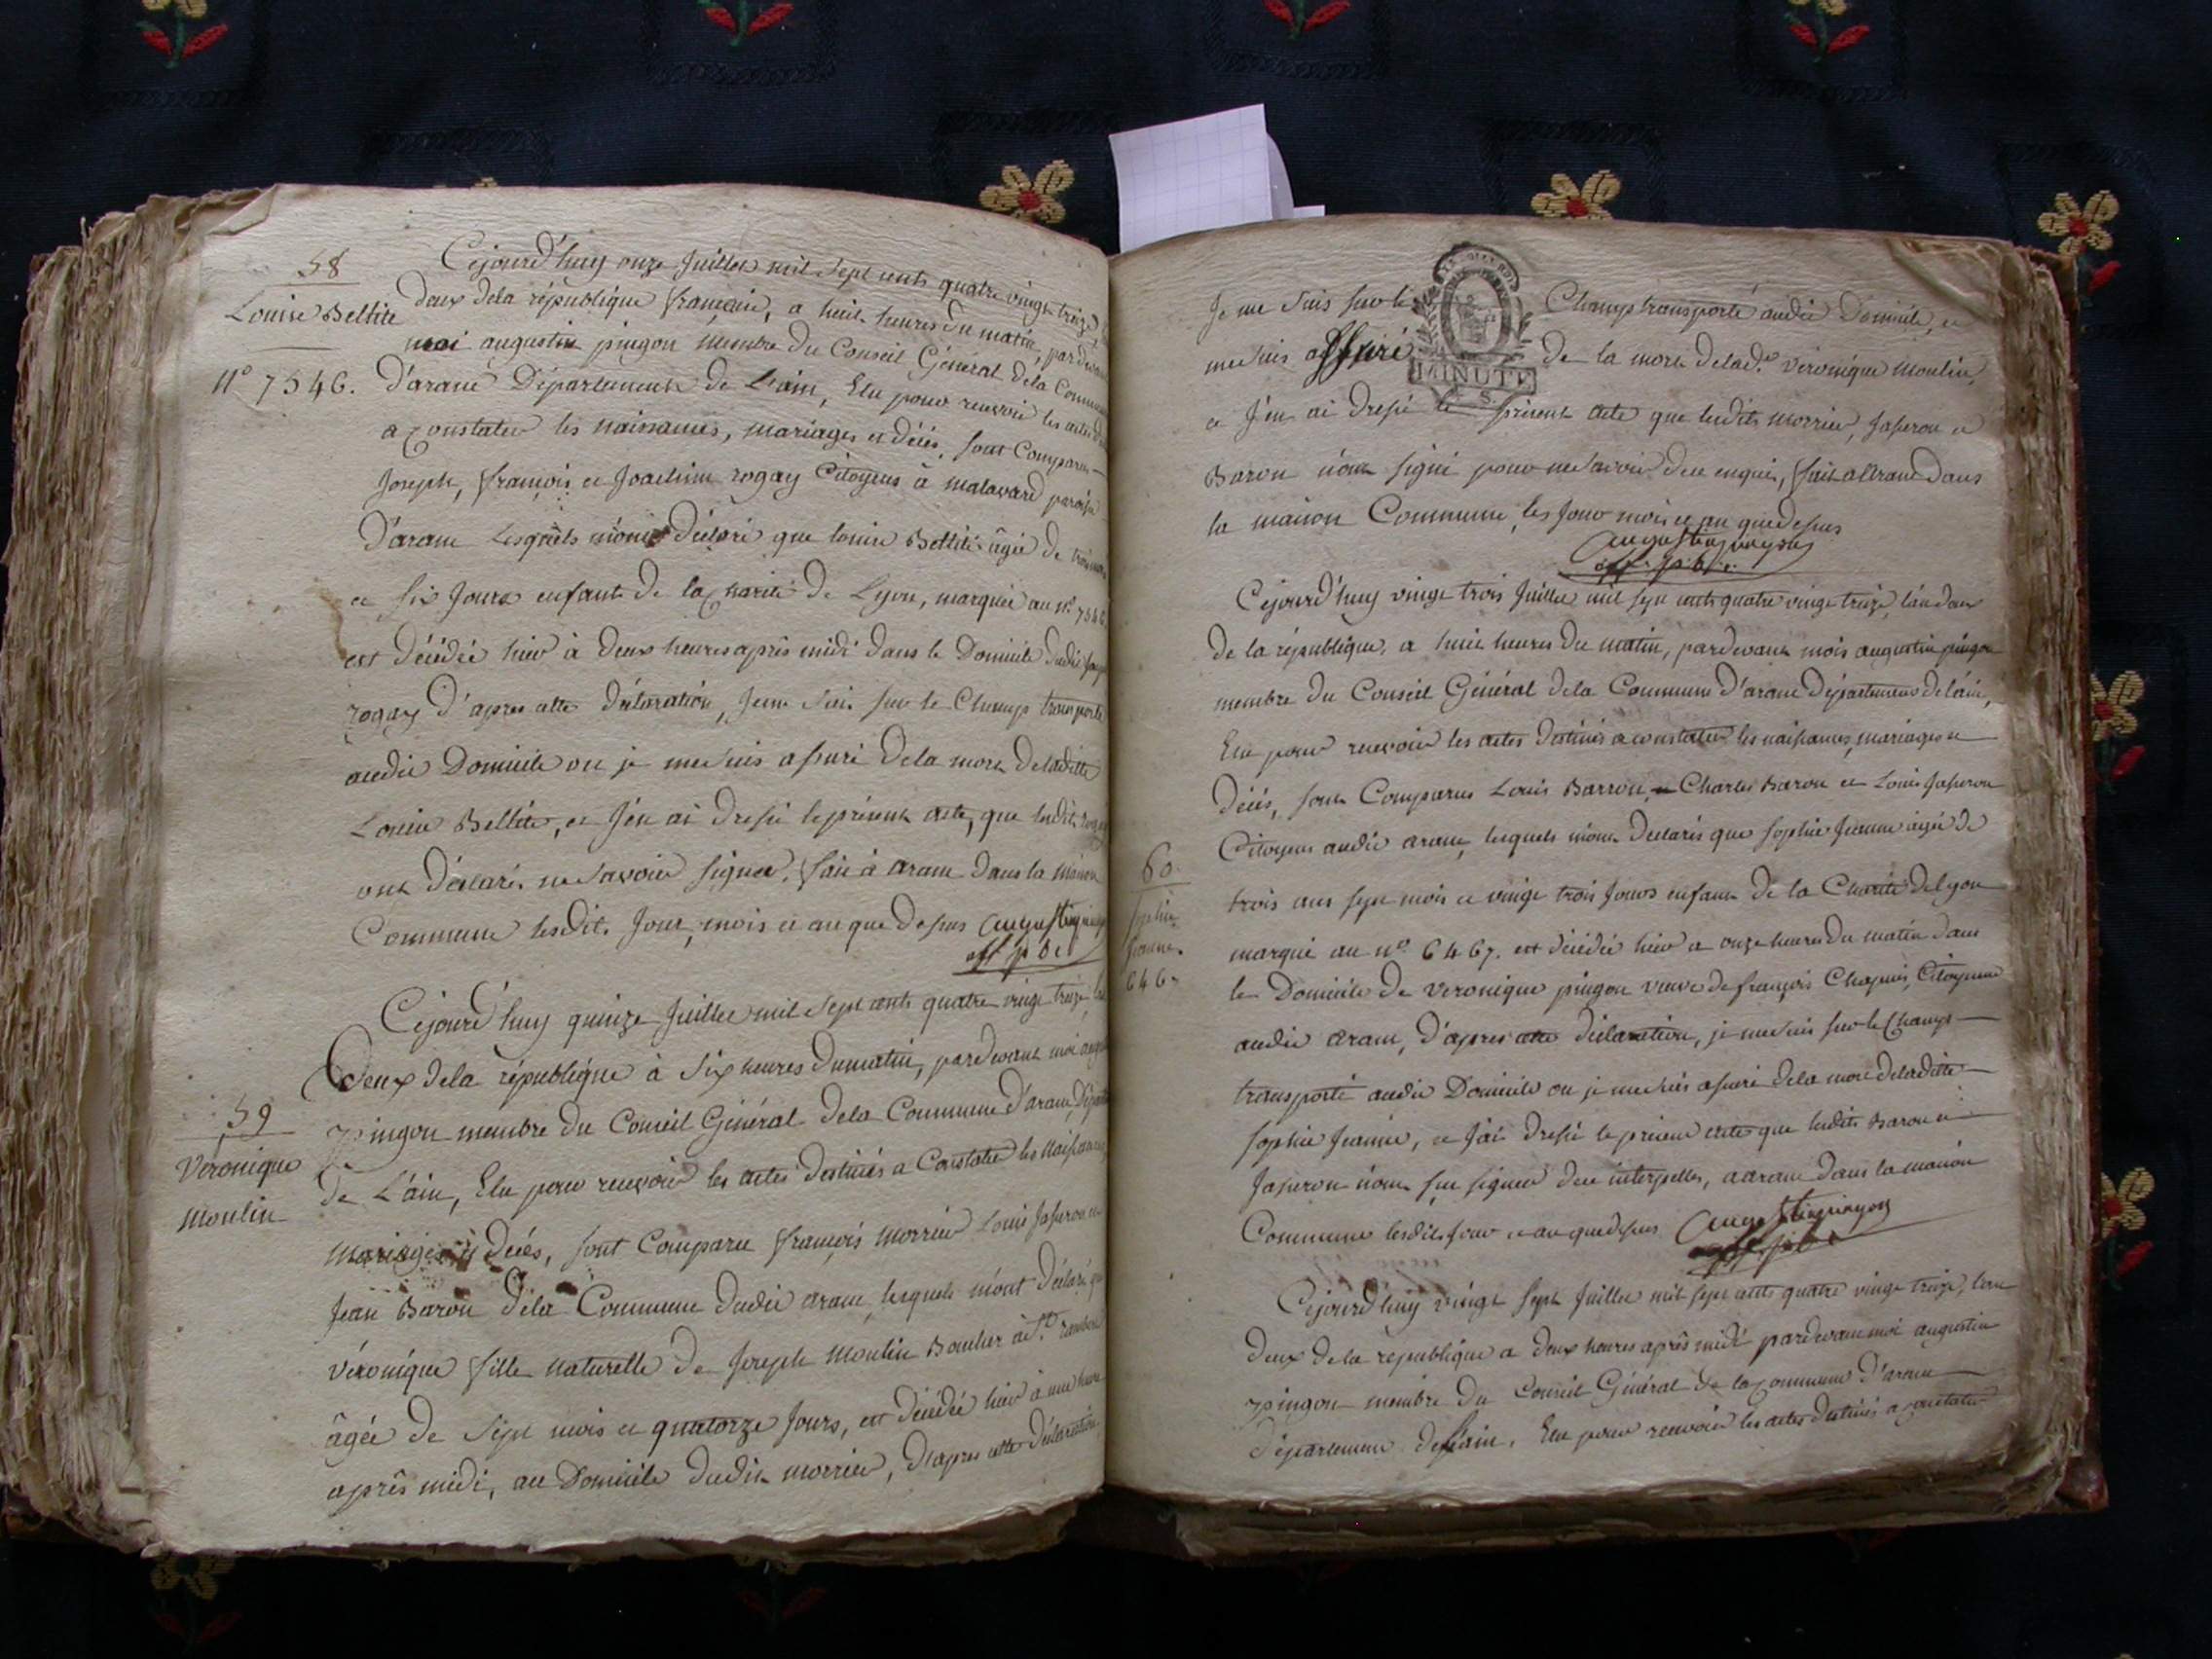 58
Louise Bellite
n.º 7546.
Cejourd'huy onze Juillet mil Sept cents quatre vingt treize,
deux dela république française, a huit heures du matin, pardevant
moi augustin pingon membre du Conseil Général dela Commune
d'arane Département de L'ain, Elu pour recevoir les actes
a constater les naissances, mariages et décés, sont Comparus
Joseph, françois et Joachim rogay Citoyens à malavard paroisse
d'arane Lesquels m'ont déclaré que louise Bellite âgée de trois mois
et six Jours enfant de la charité de Lyon, marquée au n.º 7546
est décédée hier à deux heures après midi dans le Domicile dudit
rogay d'apres cette déclaration, Jeme Suis sur le Champ transporté
audit Domicile ou je mesuis assuré dela mort deladitte
Louise Bellite, et J'en ai dressé le présent acte, que lesdits rogay
ont déclarés ne savoir signer, fait à arane dans la maison
Commune lesdits Jour, mois et an que dessus augustin pingon
off. p.bl
59
Véronique
moulin
Cejourd'huy quinze Juillet mil Sept cents quatre vingt treize,
deux dela république à six heures dumatin, pardevant moi
pingon membre du Conseil Général dela Commune d'arane
de L'ain, Elu pour recevoir les actes destinés a Constater les Naissances
mariages et décés, sont Comparu françois morrier Louis Jasseron et
Jean Baron dela Commune dudit arane, lesquels m'ont déclaré que
véronique fille naturelle de Joseph moulin Boucher à S.t rambert
âgée de sept mois et quatorze Jours, est décédée hier à une heure
après midi, au Domicile dudit morrier, d'apres cette déclaration
Je me suis sur le Champ transporté audit Domicile, et
me suis assuré de la mort delad.e veronique moulin,
MINUTE
et J'en ai dressé le présent acte que lesdits morrier, Jasseron et
Baron n'ont signé pour ne savoir de ce enquis, fait a Arane dans
la maison Commune, les Jour mois et an que dessus
augustin pingon
off. p.bl.
Cejourd'huy vingt trois Juillet mil sept cents quatre vingt treize, l'an deux
de la république, a huit heures du matin, pardevant mois augustin pingon
membre du Conseil Général dela Commune d'arane département de l'ain,
Elu pour recevoir les actes destinés a constater les naissances, mariages et
décés, sont Comparus Louis Barron, Charles Baron et Louis Jasseron
Citoyens audit arane, lesquels m'ont declarés que sophie Jeanne agée de
60.
sophie
Jeanne.
646
trois ans sept mois et vingt trois Jours enfant de la Charité delyon
marqué au n.º 6467. est décédée hier a onze heures du matin dans
le Domicile de veronique pingon veuve de françois Chapuis, Citoyenne
audit arane, d'apres cette déclaration, je mesuis sur le Champ
transporté audit Domicile ou je mesuis assuré dela mort deladitte
sophie Jeanne, et J'ai dressé le présent acte que lesdits Baron et
Jasseron n'ont su signer de ce interpellés, a arane dans la maison
Commune lesdits Jour et an que dessus augustin pingon
Cejourd'huy vingt sept Juillet mil sept cents quatre vingt treize, l'an
deux de la république a deux heures après midi pardevant moi augustin
pingon membre du Conseil Général de la Commune d'arane
département de l'ain, Elu pour recevoir les actes destinés a constater